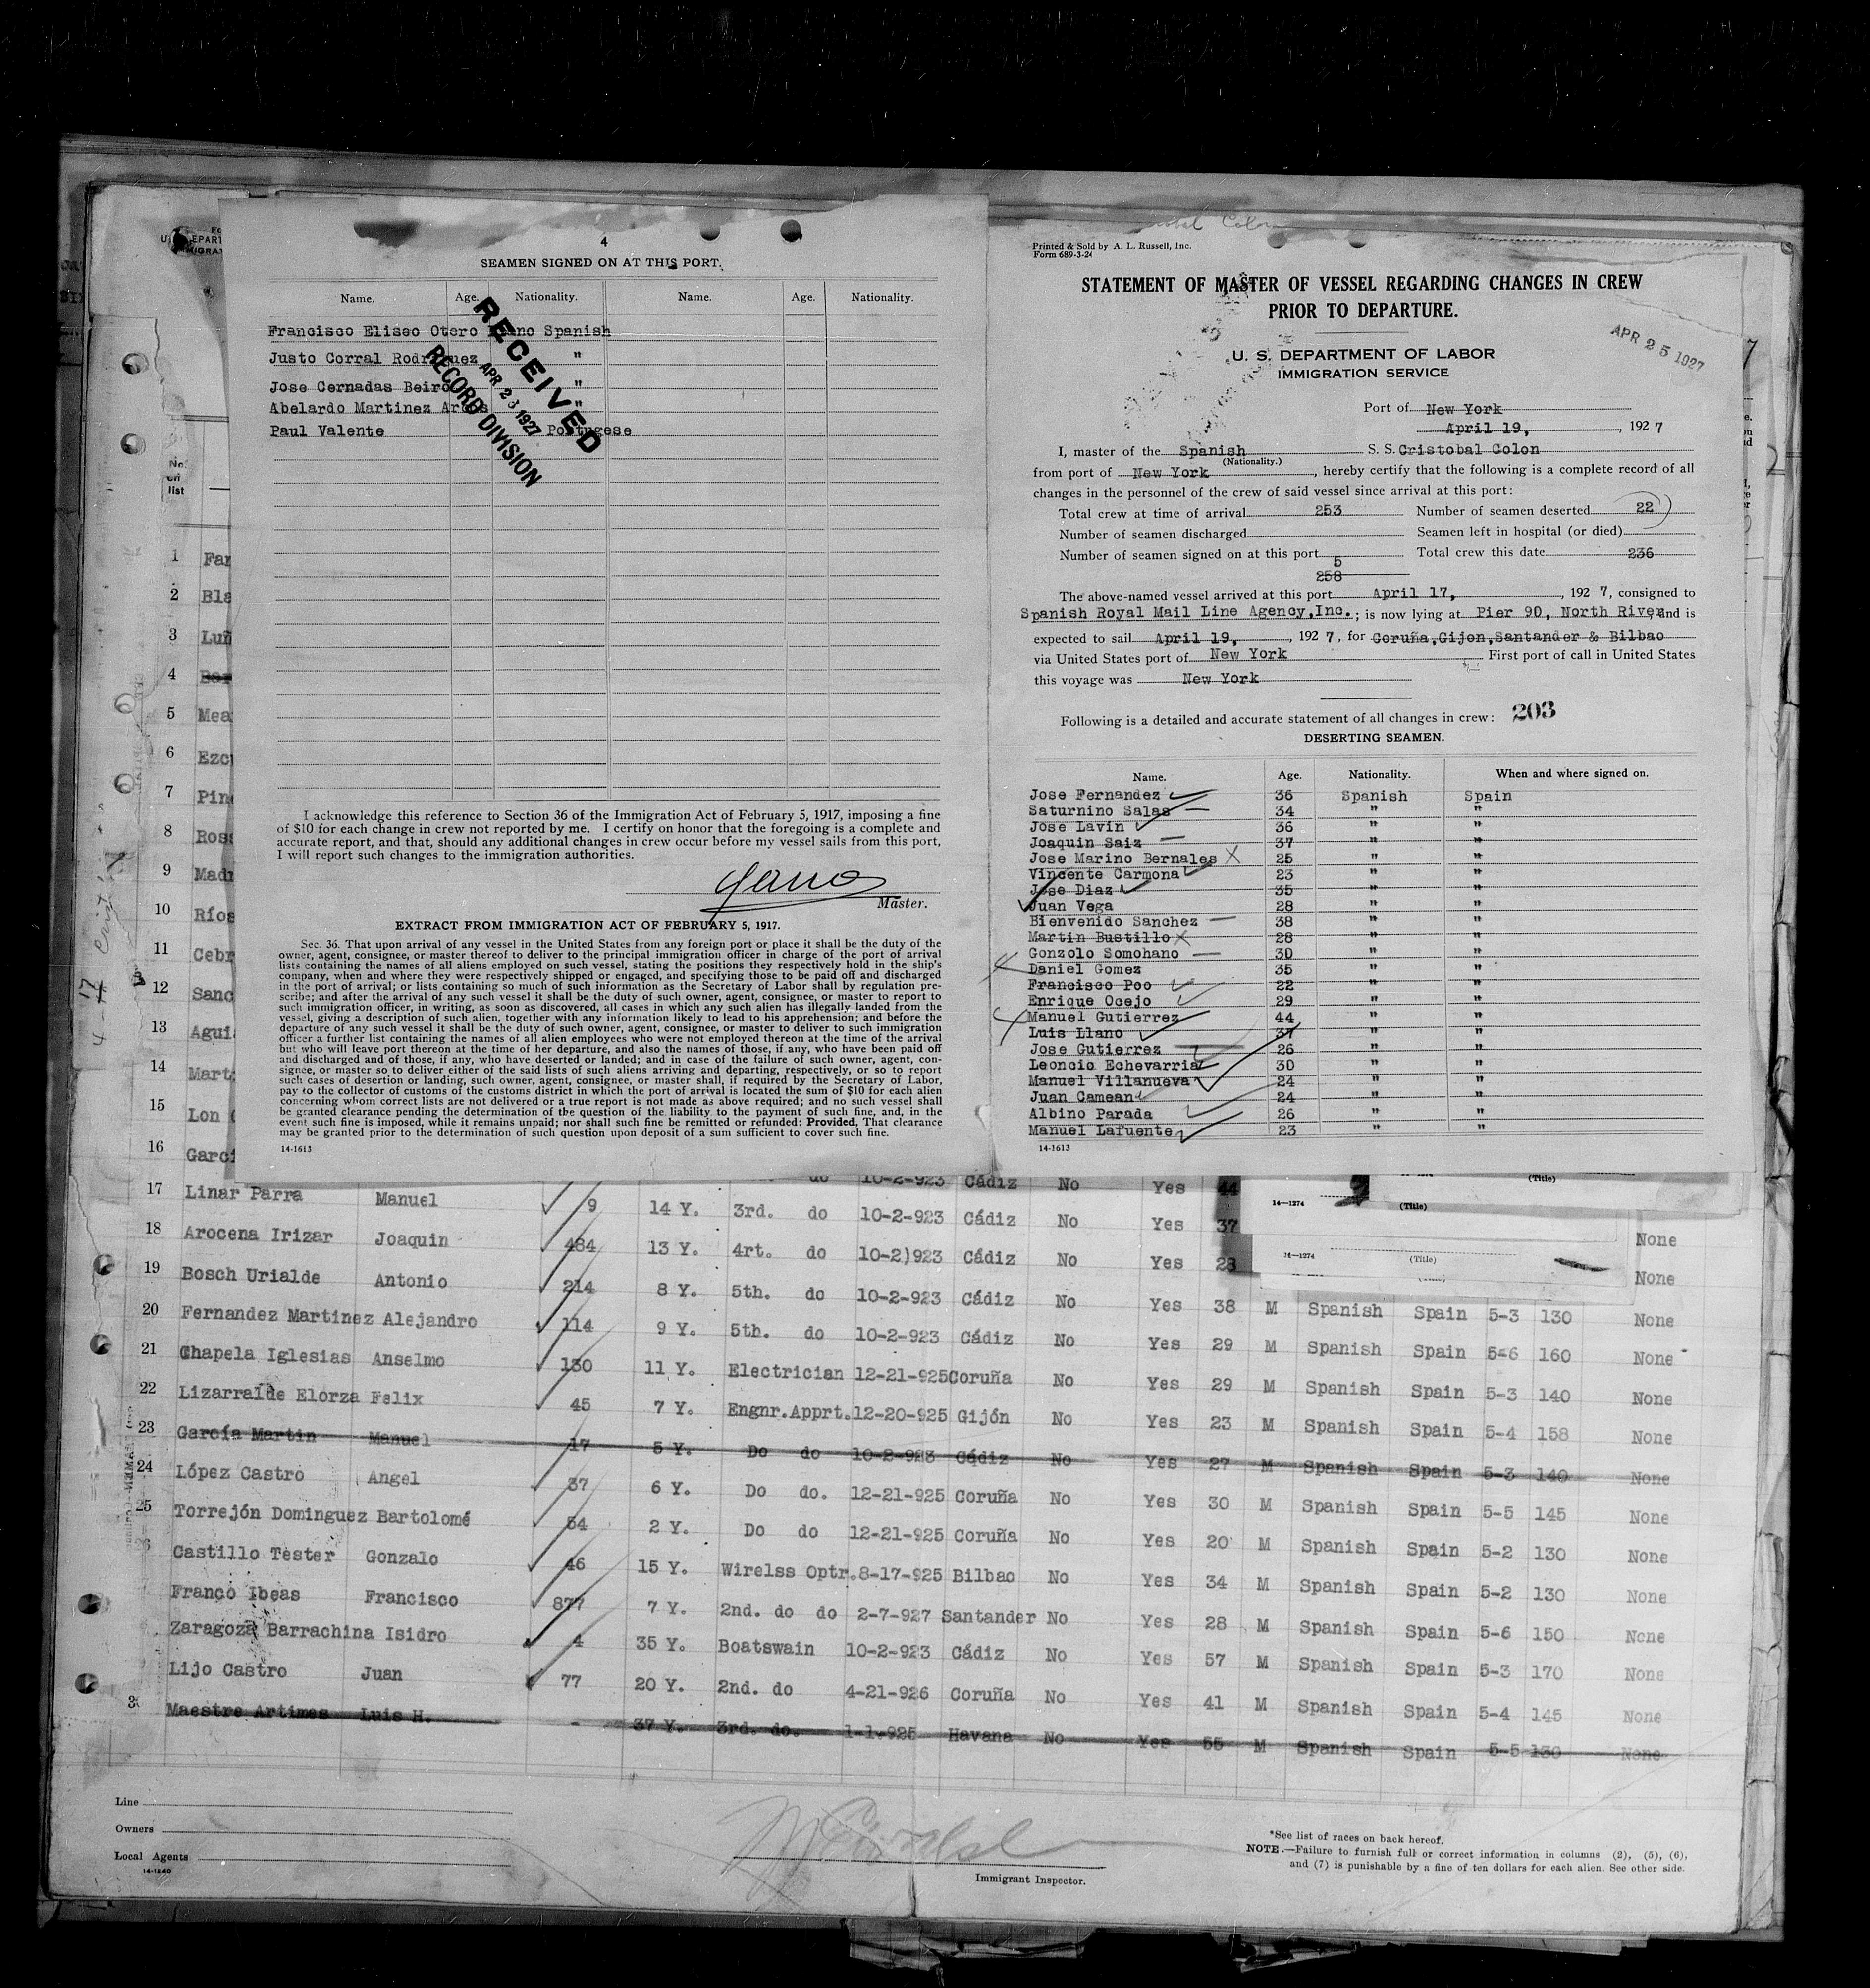 4
SEAMEN SIGNED ON AT THIS PORT.
Name. Age. Nationality. Name. Age. Nationality.
Francisco Eliseo Otero Spanish
Justo Corral Rodriguez "
Jose Cernadas Beiro "
Abelardo Martinez "
Paul Valente Portugese
RECEIVED
APR 23 1927
RECORD DIVISION
I acknowledge this reference to Section 36 of the Immigration Act of February 5, 1917, imposing a fine
of $10 for each change in crew not reported by me. I certify on honor that the foregoing is a complete and
accurate report, and that, should any additional changes in crew occur before my vessel sails from this port,
I will report such changes to the immigration authorities.
Master.
EXTRACT FROM IMMIGRATION ACT OF FEBRUARY 5, 1917.
Sec. 36. That upon arrival of any vessel in the United States from any foreign port or place it shall be the duty of the
owner, agent, consignee, or master thereof to deliver to the principal immigration officer in charge of the port of arrival
lists containing the names of all aliens employed on such vessel, stating the positions they respectively hold in the ship's
company, when and where they were respectively shipped or engaged, and specifying those to be paid off and discharged
in the port of arrival; or lists containing so much of such information as the Secretary of Labor shall by regulation pre-
scribe; and after the arrival of any such vessel it shall be the duty of such owner, agent, consignee, or master to report to
such immigration officer, in writing, as soon as discovered, all cases in which any such alien has illegally landed from the
vessel, giving a description of such alien, together with any information likely to lead to his apprehension; and before the
departure of any such vessel it shall be the duty of such owner, agent, consignee, or master to deliver to such immigration
officer a further list containing the names of all alien employees who were not employed thereon at the time of the arrival
but who will leave port thereon at the time of her departure, and also the names of those, if any, who have been paid off
and discharged and of those, if any, who have deserted or landed; and in case of the failure of such owner, agent, con-
signee, or master so to deliver either of the said lists of such aliens arriving and departing, respectively, or so to report
such cases of desertion or landing, such owner, agent, consignee, or master shall, if required by the Secretary of Labor,
pay to the collector of customs of the customs district in which the port of arrival is located the sum of $10 for each alien
concerning whom correct lists are not delivered or a true report is not made as above required; and no such vessel shall
be granted clearance pending the determination of the question of the liability to the payment of such fine, and, in the
event such fine is imposed, while it remains unpaid; nor shall such fine be remitted or refunded: Provided, That clearance
may be granted prior to the determination of such question upon deposit of a sum sufficient to cover such fine.
14-1613
Printed & Sold by A. L. Russell, Inc.
Form 689-3-24
STATEMENT OF MASTER OF VESSEL REGARDING CHANGES IN CREW
PRIOR TO DEPARTURE.
APR 25 1927
U. S. DEPARTMENT OF LABOR
IMMIGRATION SERVICE
Port of New York
April 19, , 1927
I, master of the Spanish S. S. Cristobal Colon
(Nationality.)
from port of New York , hereby certify that the following is a complete record of all
changes in the personnel of the crew of said vessel since arrival at this port:
Total crew at time of arrival 253 Number of seamen deserted 22
Number of seamen discharged Seamen left in hospital (or died)
Number of seamen signed on at this port 5 Total crew this date 236
258
The above-named vessel arrived at this port April 17, , 1927, consigned to
Spanish Royal Mail Line Agency,Inc. ; is now lying at Pier 90, North River, and is
expected to sail April 19, , 1927, for Coruña,Gijon,Santander & Bilbao
via United States port of New York First port of call in United States
this voyage was New York
Following is a detailed and accurate statement of all changes in crew: 203
DESERTING SEAMEN.
Name. Age. Nationality. When and where signed on.
Jose Fernandez 36 Spanish Spain
Saturnino Salas 34 " "
Jose Lavin 36 " "
Joaquin Saiz 37 " "
Jose Marino Bernales 25 " "
Vincente Carmona 23 " "
Jose Diaz 35 " "
Juan Vega 28 " "
Bienvenido Sanchez 38 " "
Martin Bustillo 28 " "
Gonzolo Somohano 30 " "
Daniel Gomez 35 " "
Francisco Poo 22 " "
Enrique Ocejo 29 " "
Manuel Gutierrez 44 " "
Luis Llano 37 " "
Jose Gutierrez 26 " "
Leoncio Echevarria 30 " "
Manuel Villanueva 24 " "
Juan Camean 24 " "
Albino Parada 26 " "
Manuel Lafuente 23 " "
14-1613
No.
on
list
1 Far
2 Bla
3 Luñ
4
5 Mea
6 Ezc
7 Pin
8 Ros
9 Mad
10 Ríos
11 Cebr
12 Sanc
13 Agui
14 Mart
15 Lon
16 Garc do 10-2-923 Cádiz No Yes 44
17 Linar Parra Manuel 9 14 Y. 3rd. do 10-2-923 Cádiz No Yes 37 None
18 Arocena Irizar Joaquin 484 13 Y. 4rt. do 10-2)923 Cádiz No Yes 28 None
19 Bosch Urialde Antonio 214 8 Y. 5th. do 10-2-923 Cádiz No Yes 38 M Spanish Spain 5-3 130 None
20 Fernandez Martinez Alejandro 114 9 Y. 5th. do 10-2-923 Cádiz No Yes 29 M Spanish Spain 5-6 160 None
21 Chapela Iglesias Anselmo 130 11 Y. Electrician 12-21-925 Coruña No Yes 29 M Spanish Spain 5-3 140 None
22 Lizarralde Elorza Felix 45 7 Y. Engnr.Apprt. 12-20-925 Gijón No Yes 23 M Spanish Spain 5-4 158 None
23 García Martin Manuel 17 5 Y. Do do 10-2-923 Cádiz No Yes 27 M Spanish Spain 5-3 140 None
24 López Castro Angel 37 6 Y. Do do. 12-21-925 Coruña No Yes 30 M Spanish Spain 5-5 145 None
25 Torrejón Dominguez Bartolomé 54 2 Y. Do do 12-21-925 Coruña No Yes 20 M Spanish Spain 5-2 130 None
26 Castillo Tester Gonzalo 46 15 Y. Wirelss Optr. 8-17-925 Bilbao No Yes 34 M Spanish Spain 5-2 130 None
Franco Ibeas Francisco 877 7 Y. 2nd. do do 2-7-927 Santander No Yes 28 M Spanish Spain 5-6 150 None
Zaragoza Barrachina Isidro 4 35 Y. Boatswain 10-2-923 Cádiz No Yes 57 M Spanish Spain 5-3 170 None
Lijo Castro Juan 77 20 Y. 2nd. do 4-21-926 Coruña No Yes 41 M Spanish Spain 5-4 145 None
30 Maestre Artimes Luis H. - 37 Y. 3rd. do. 1-1-925 Havana No Yes 55 M Spanish Spain 5-5 130 None
(Title)
14-1274 (Title)
14-1274 (Title)
Line
Owners
Local Agents
14-1240
Immigrant Inspector.
*See list of races on back hereof.
NOTE.—Failure to furnish full or correct information in columns (2), (5), (6),
and (7) is punishable by a fine of ten dollars for each alien. See other side.